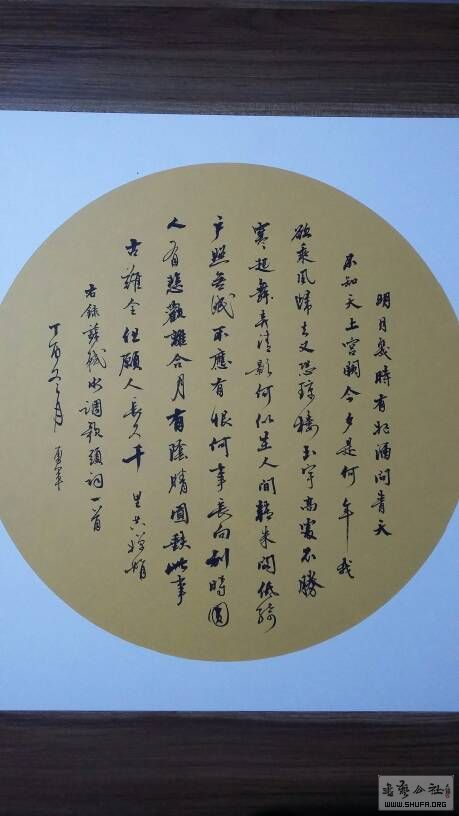 明月幾時有把酒問青天
不知天上宮闕今夕是何年我
欲乘風歸去又恐瓊樓玉宇高處不勝
寒起舞弄清影何似在人間轉朱閣低綺
户照無眠不應有恨何事長向别時圓
人有悲歡離合月有陰晴圓缺此事
古難全但願人長久千里共嬋娟
右録蘇軾水調歌頭詞一首
丁酉冬月
书法公社
WWW.SHUFA.ORG